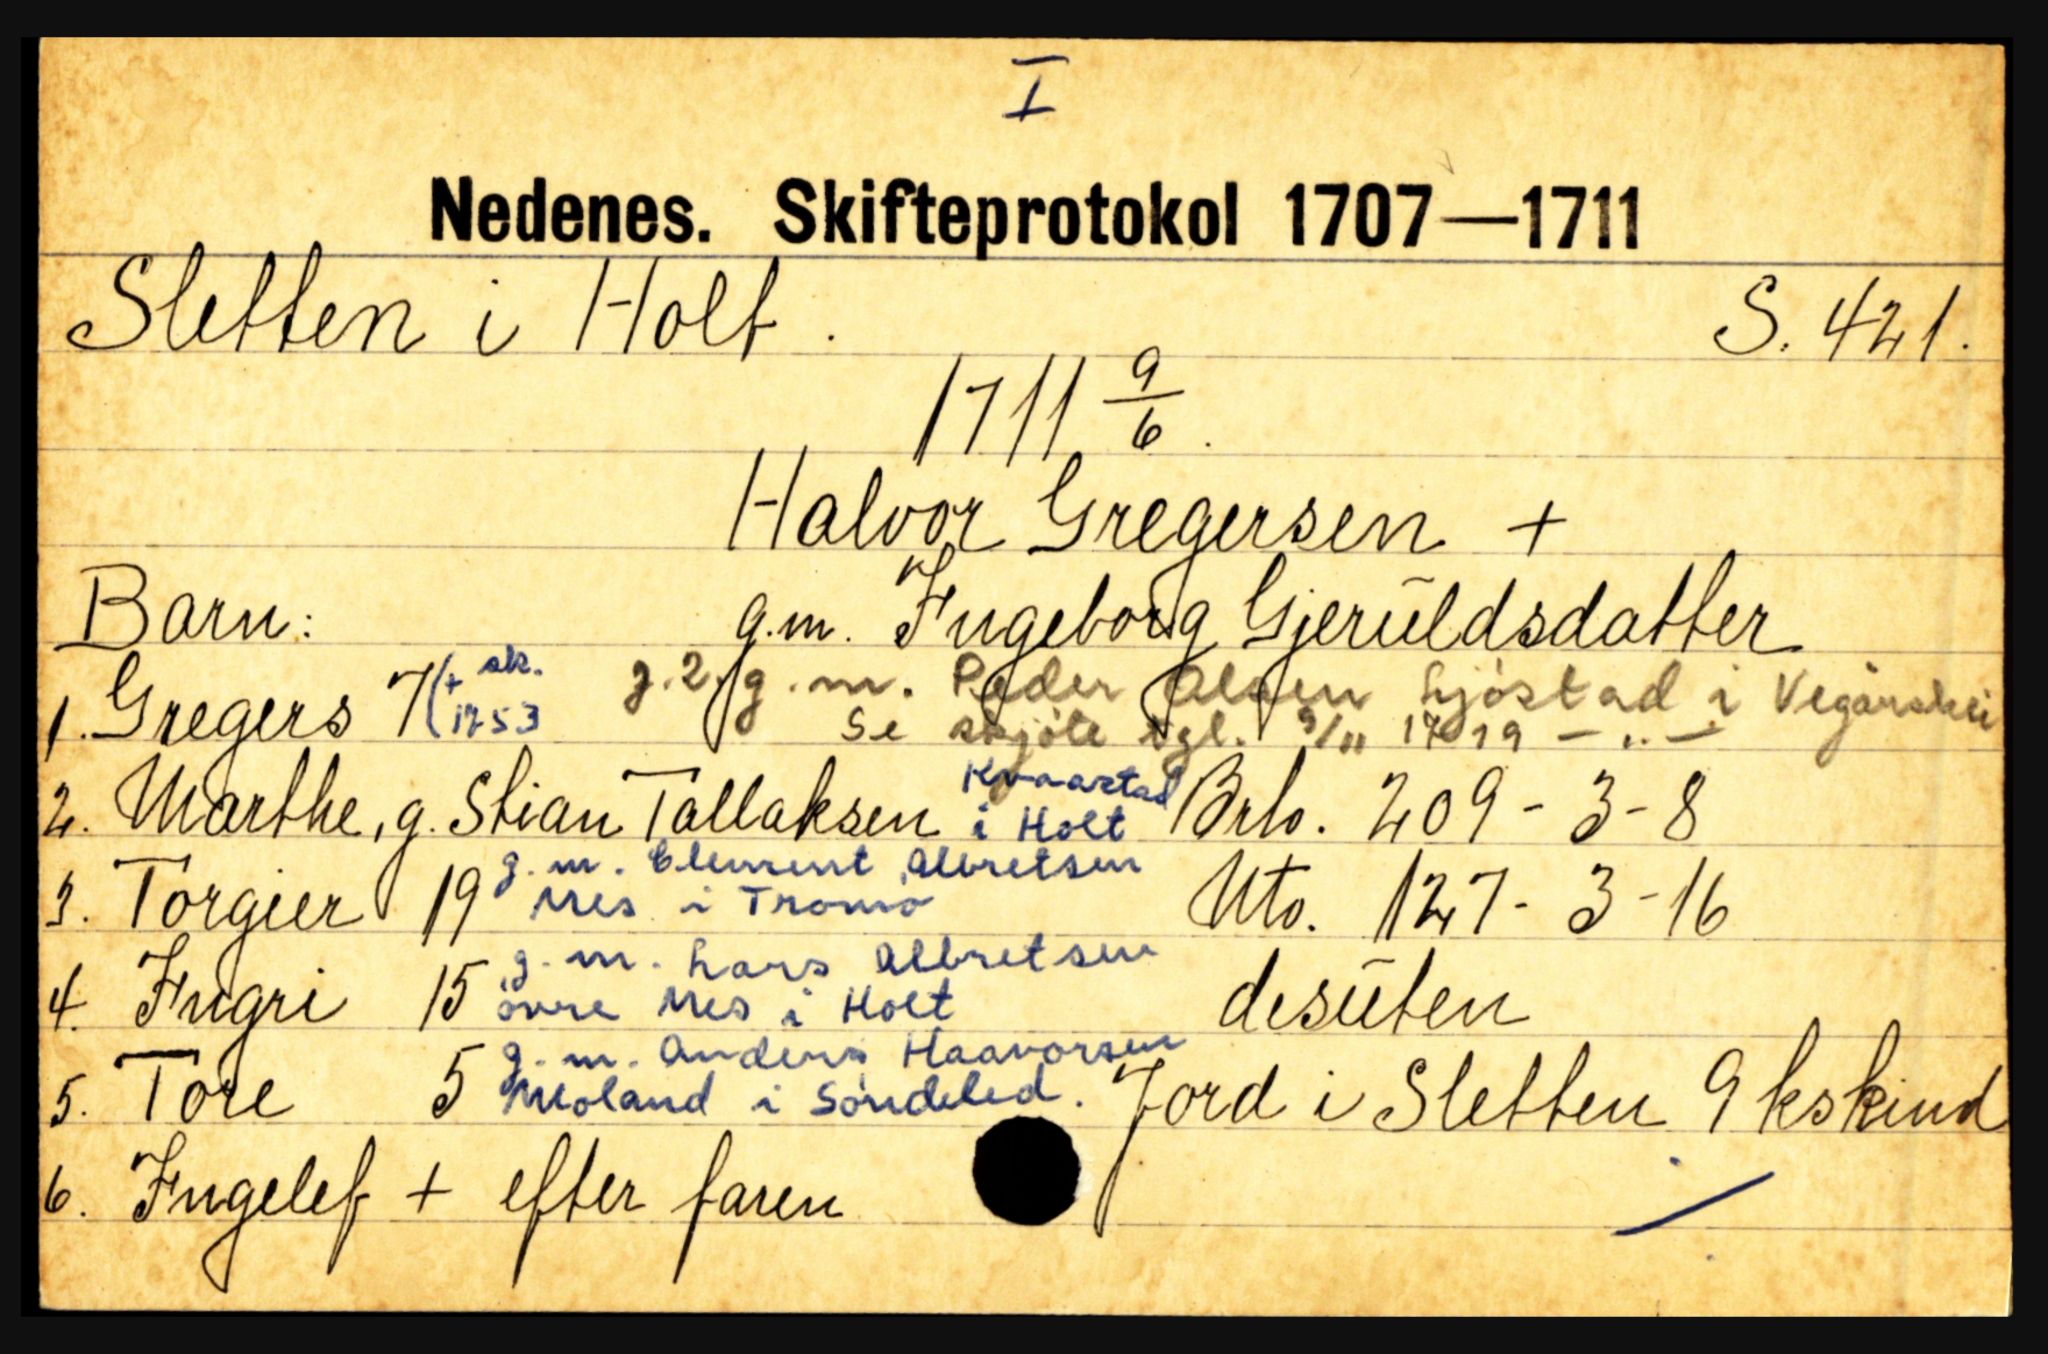 I
Nedenes. Skifteprotokol 1707—1711
Sletten i Holt. S. 421.
1711 9/6.
Halvor Gregersen +
Barn: g.m. Ingeborg Gjerŭldsdatter
1. Gregers 7 (+ sk. 1753 g. 2. g. m. Peder Olsen Ljøstad i Vegårshei
Se skjøte tgl. 9/11 1719 — " —
2. Marthe, g. Stian Tallaksen Kvaastad i Holt Brto. 209 - 3 - 8
3. Torgier 19 g. m. Clement Albretsen Nes i Tromø Nto. 127 - 3 - 16
4. Ingri 15 g. m. Lars Albretsen øvre Nes i Holt desŭten
5. Tore 5 g. m. Anders Haavorsen Moland i Søndeled. Jord i Sletten 9 kskind
6. Ingelef + efter faren